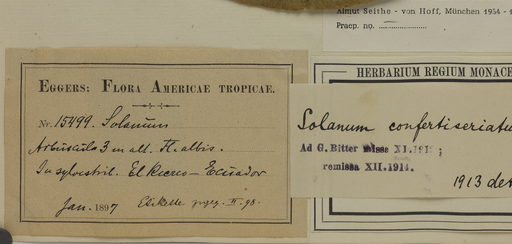 Almut Seithe - von Hoff, München 1954 - 1
Praep. no. ....................
EGGERS: FLORA AMERICAE TROPICAE.
Nr. 15499. Solanum
Arbuscula 3 m alt. Fl. albis.
In sylvestrib. El Recreo — Ecuador
Jan. 1897 Etikette II. 98.
HERBARIUM REGIUM MONACE
Solanum confertiseriatu
Ad G. Bitter misse XI.191 ;
remissa XII.1914.
1913 det